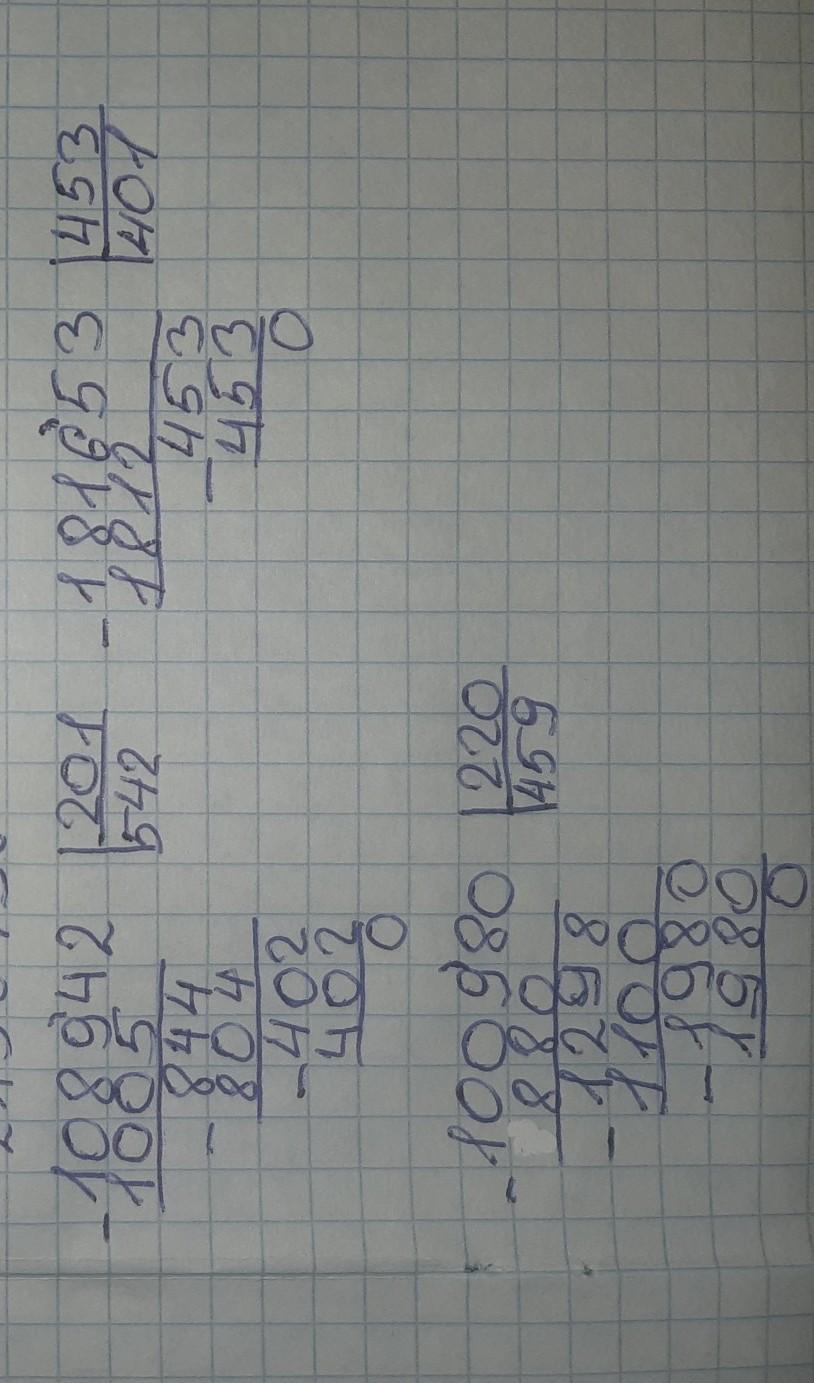 -108942 |201
1005 542
-844
804
-402
402
0
-181653 |453
1812 401
-453
453
0
-100980 |220
880 459
-1298
1100
-1980
1980
0